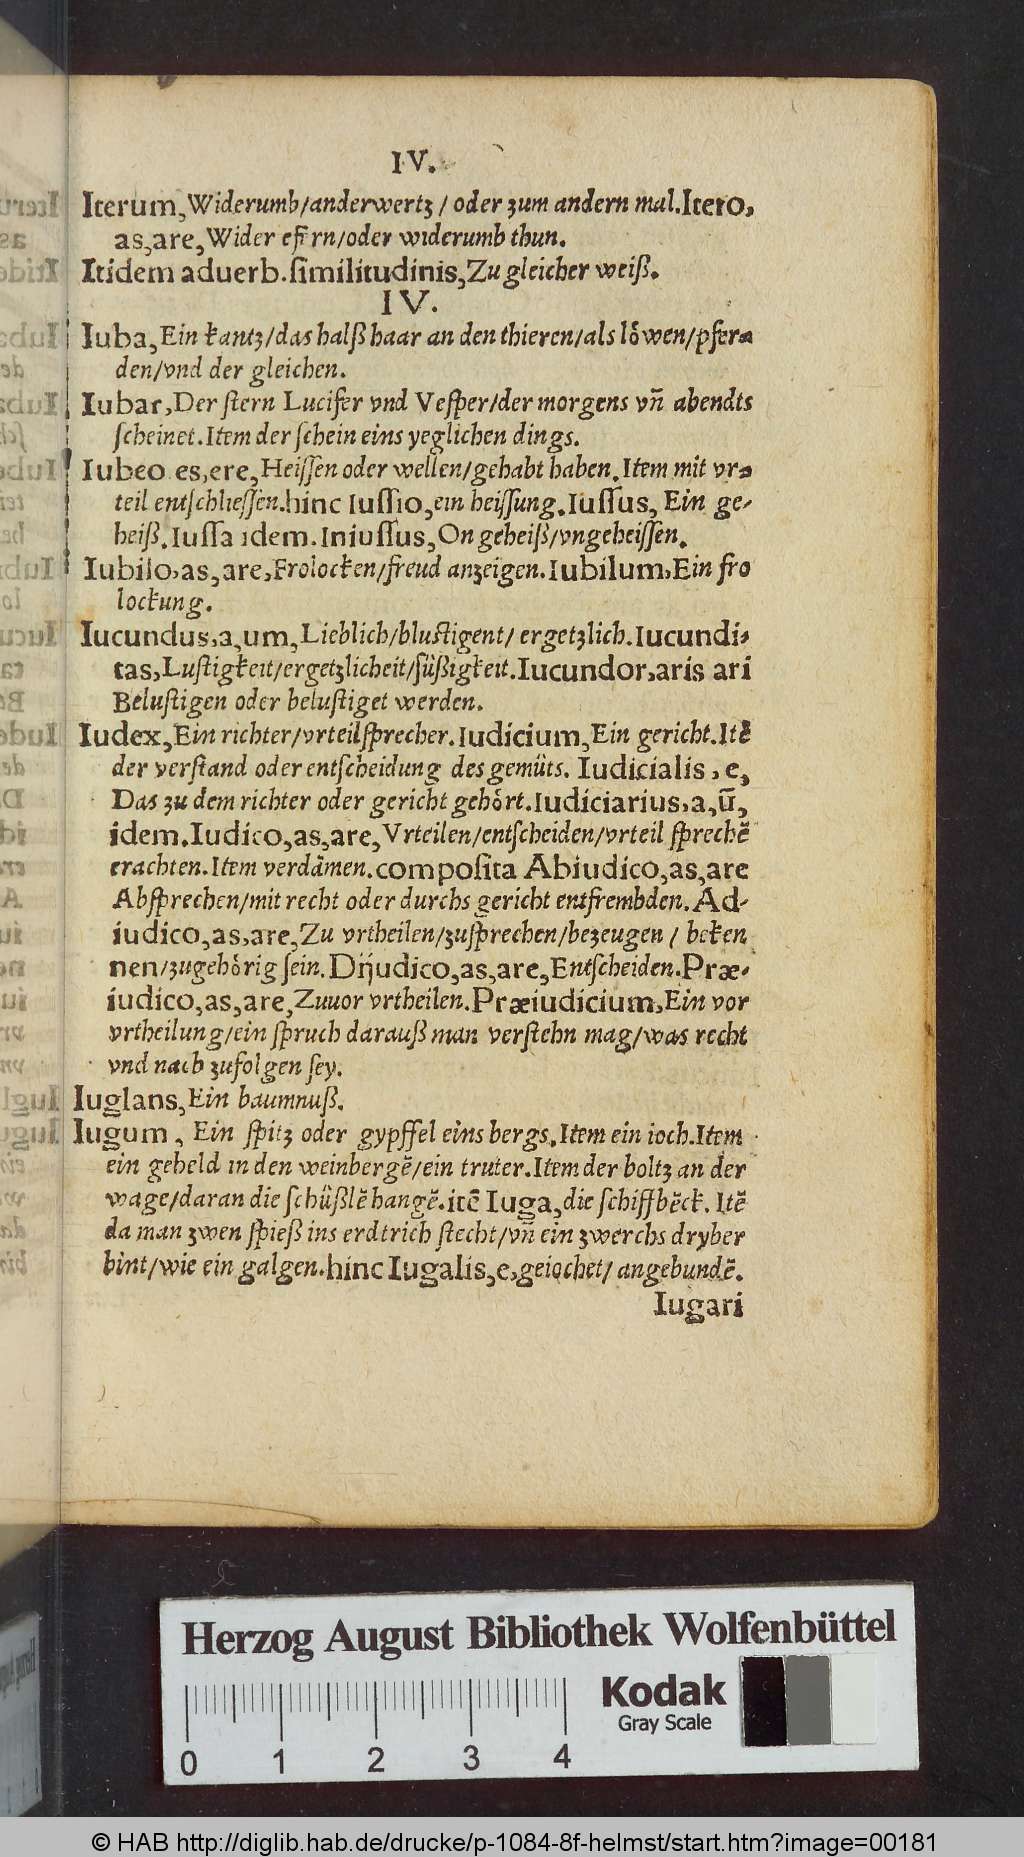 IV.
Iterum, Widerumb/anderwertz / oder zum andern mal. Itero,
as, are, Wider efern/oder widerumb thun.
Itidem aduerb. ſimilitudinis, Zu gleicher weiß.
IV.
Iuba, Ein kantz/das halß haar an den thieren/als löwen/pfer-
den/vnd der gleichen.
Iubar, Der ſtern Lucifer vnd Veſper/der morgens vñ abendts
ſcheinet. Item der ſchein eins yeglichen dings.
Iubeo es, ere, Heiſſen oder wellen/gehabt haben. Item mit vr-
teil entſchlieſſen. hinc Iuſſio, ein heiſſung. Iuſſus, Ein ge-
heiß. Iuſſa idem. Iniuſſus, On geheiß/vngeheiſſen.
Iubilo, as, are, Frolocken/freud anzeigen. Iubilum, Ein fro
lockung.
Iucundus, a, um, Lieblich/bluſtigent/ ergetzlich. Iucundi-
tas, Luſtigkeit/ergetzlicheit/ſüßigkeit. Iucundor, aris ari
Beluſtigen oder beluſtiget werden.
Iudex, Ein richter/vrteilſprecher. Iudicium, Ein gericht. Itẽ
der verſtand oder entſcheidung des gemüts. Iudicialis, e,
Das zu dem richter oder gericht gehört. Iudiciarius, a, ũ,
idem. Iudico, as, are, Vrteilen/entſcheiden/vrteil ſprechẽ
erachten. Item verdãmen. compoſita Abiudico, as, are
Abſprechen/mit recht oder durchs gericht entfrembden. Ad-
iudico, as, are, Zu vrtheilen/zuſprechen/bezeugen / beken
nen/zugehörig ſein. Dijudico, as, are, Entſcheiden. Præ-
iudico, as, are, Zuuor vrtheilen. Præiudicium, Ein vor
vrtheilung/ein ſpruch darauß man verſtehn mag/was recht
vnd nach zufolgen ſey.
Iuglans, Ein baumnuß.
Iugum, Ein ſpitz oder gypffel eins bergs. Item ein ioch. Item
ein geheld in den weinbergẽ/ein truter. Item der boltz an der
wage/daran die ſchüßlẽ hangẽ. itẽ Iuga, die ſchiffbẽck. Itẽ
da man zwen ſpieß ins erdtrich ſtecht/vñ ein zwerchs dryber
bint/wie ein galgen. hinc Iugalis, e, geiochet/ angebundẽ.
Iugari
Herzog August Bibliothek Wolfenbüttel
Kodak
Gray Scale
0 1 2 3 4
© HAB http://diglib.hab.de/drucke/p-1084-8f-helmst/start.htm?image=00181